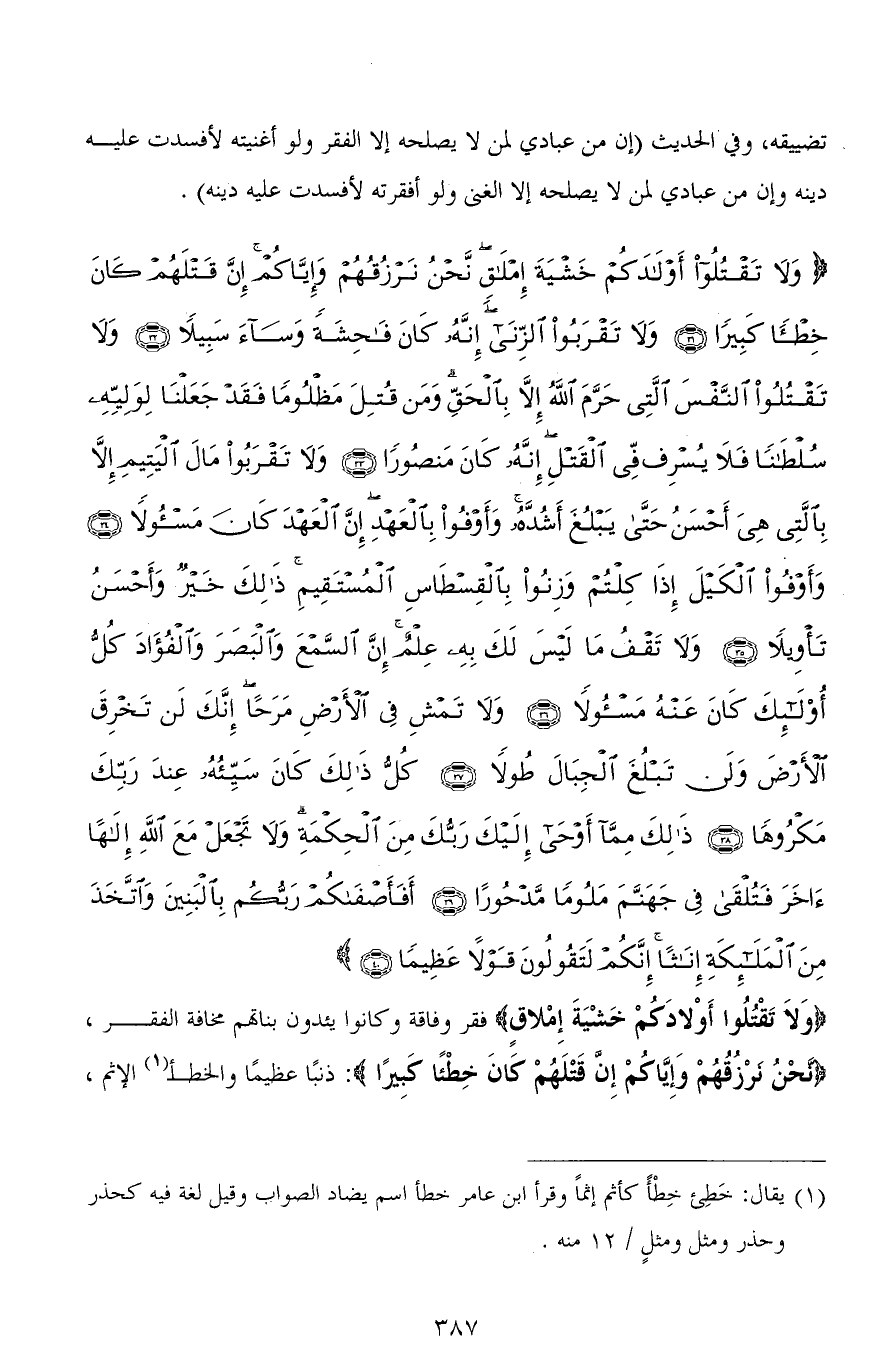 تضييقه، وفي الحديث (إن من عبادي لمن لا يصلحه إلا الفقر ولو أغنيته لأفسدت عليـــه
دينه وإن من عبادي لمن لا يصلحه إلا الغنى ولو أفقرته لأفسدت عليه دينه) .
﴿ وَلَا تَقْتُلُوٓا۟ أَوْلَـٰدَكُمْ خَشْيَةَ إِمْلَـٰقٍ ۖ نَّحْنُ نَرْزُقُهُمْ وَإِيَّاكُمْ ۚ إِنَّ قَتْلَهُمْ كَانَ
خِطْـًٔا كَبِيرًا ٣١ وَلَا تَقْرَبُوا۟ ٱلزِّنَىٰٓ ۖ إِنَّهُۥ كَانَ فَـٰحِشَةً وَسَآءَ سَبِيلًا ٣٢ وَلَا
تَقْتُلُوا۟ ٱلنَّفْسَ ٱلَّتِى حَرَّمَ ٱللَّهُ إِلَّا بِٱلْحَقِّ ۗ وَمَن قُتِلَ مَظْلُومًا فَقَدْ جَعَلْنَا لِوَلِيِّهِۦ
سُلْطَـٰنًا فَلَا يُسْرِف فِّى ٱلْقَتْلِ ۖ إِنَّهُۥ كَانَ مَنصُورًا ٣٣ وَلَا تَقْرَبُوا۟ مَالَ ٱلْيَتِيمِ إِلَّا
بِٱلَّتِى هِىَ أَحْسَنُ حَتَّىٰ يَبْلُغَ أَشُدَّهُۥ ۚ وَأَوْفُوا۟ بِٱلْعَهْدِ ۖ إِنَّ ٱلْعَهْدَ كَانَ مَسْـُٔولًا ٣٤
وَأَوْفُوا۟ ٱلْكَيْلَ إِذَا كِلْتُمْ وَزِنُوا۟ بِٱلْقِسْطَاسِ ٱلْمُسْتَقِيمِ ۚ ذَٰلِكَ خَيْرٌ وَأَحْسَنُ
تَأْوِيلًا ٣٥ وَلَا تَقْفُ مَا لَيْسَ لَكَ بِهِۦ عِلْمٌ ۚ إِنَّ ٱلسَّمْعَ وَٱلْبَصَرَ وَٱلْفُؤَادَ كُلُّ
أُو۟لَـٰٓئِكَ كَانَ عَنْهُ مَسْـُٔولًا ٣٦ وَلَا تَمْشِ فِى ٱلْأَرْضِ مَرَحًا ۖ إِنَّكَ لَن تَخْرِقَ
ٱلْأَرْضَ وَلَن تَبْلُغَ ٱلْجِبَالَ طُولًا ٣٧ كُلُّ ذَٰلِكَ كَانَ سَيِّئُهُۥ عِندَ رَبِّكَ
مَكْرُوهًا ٣٨ ذَٰلِكَ مِمَّآ أَوْحَىٰٓ إِلَيْكَ رَبُّكَ مِنَ ٱلْحِكْمَةِ ۗ وَلَا تَجْعَلْ مَعَ ٱللَّهِ إِلَـٰهًا
ءَاخَرَ فَتُلْقَىٰ فِى جَهَنَّمَ مَلُومًا مَّدْحُورًا ٣٩ أَفَأَصْفَىٰكُمْ رَبُّكُم بِٱلْبَنِينَ وَٱتَّخَذَ
مِنَ ٱلْمَلَـٰٓئِكَةِ إِنَـٰثًا ۚ إِنَّكُمْ لَتَقُولُونَ قَوْلًا عَظِيمًا ٤٠ ﴾
﴿وَلَا تَقْتُلُوا أَوْلادَكُمْ خَشْيَةَ إِمْلاقٍ﴾ فقر وفاقة وكانوا يئدون بناتهم مخافة الفقـــر ،
﴿نَّحْنُ نَرْزُقُهُمْ وَإِيَّاكُمْ إِنَّ قَتْلَهُمْ كَانَ خِطْئًا كَبِيرًا ﴾: ذنبًا عظيمًا والخطـأ(١) الإثم ،
(١) يقال: خَطِئ خِطْأً كأثم إثماً وقرأ ابن عامر خطأ اسم يضاد الصواب وقيل لغة فيه كحذر
وحذر ومثل ومثلٍ / ١٢ منه .
٣٨٧